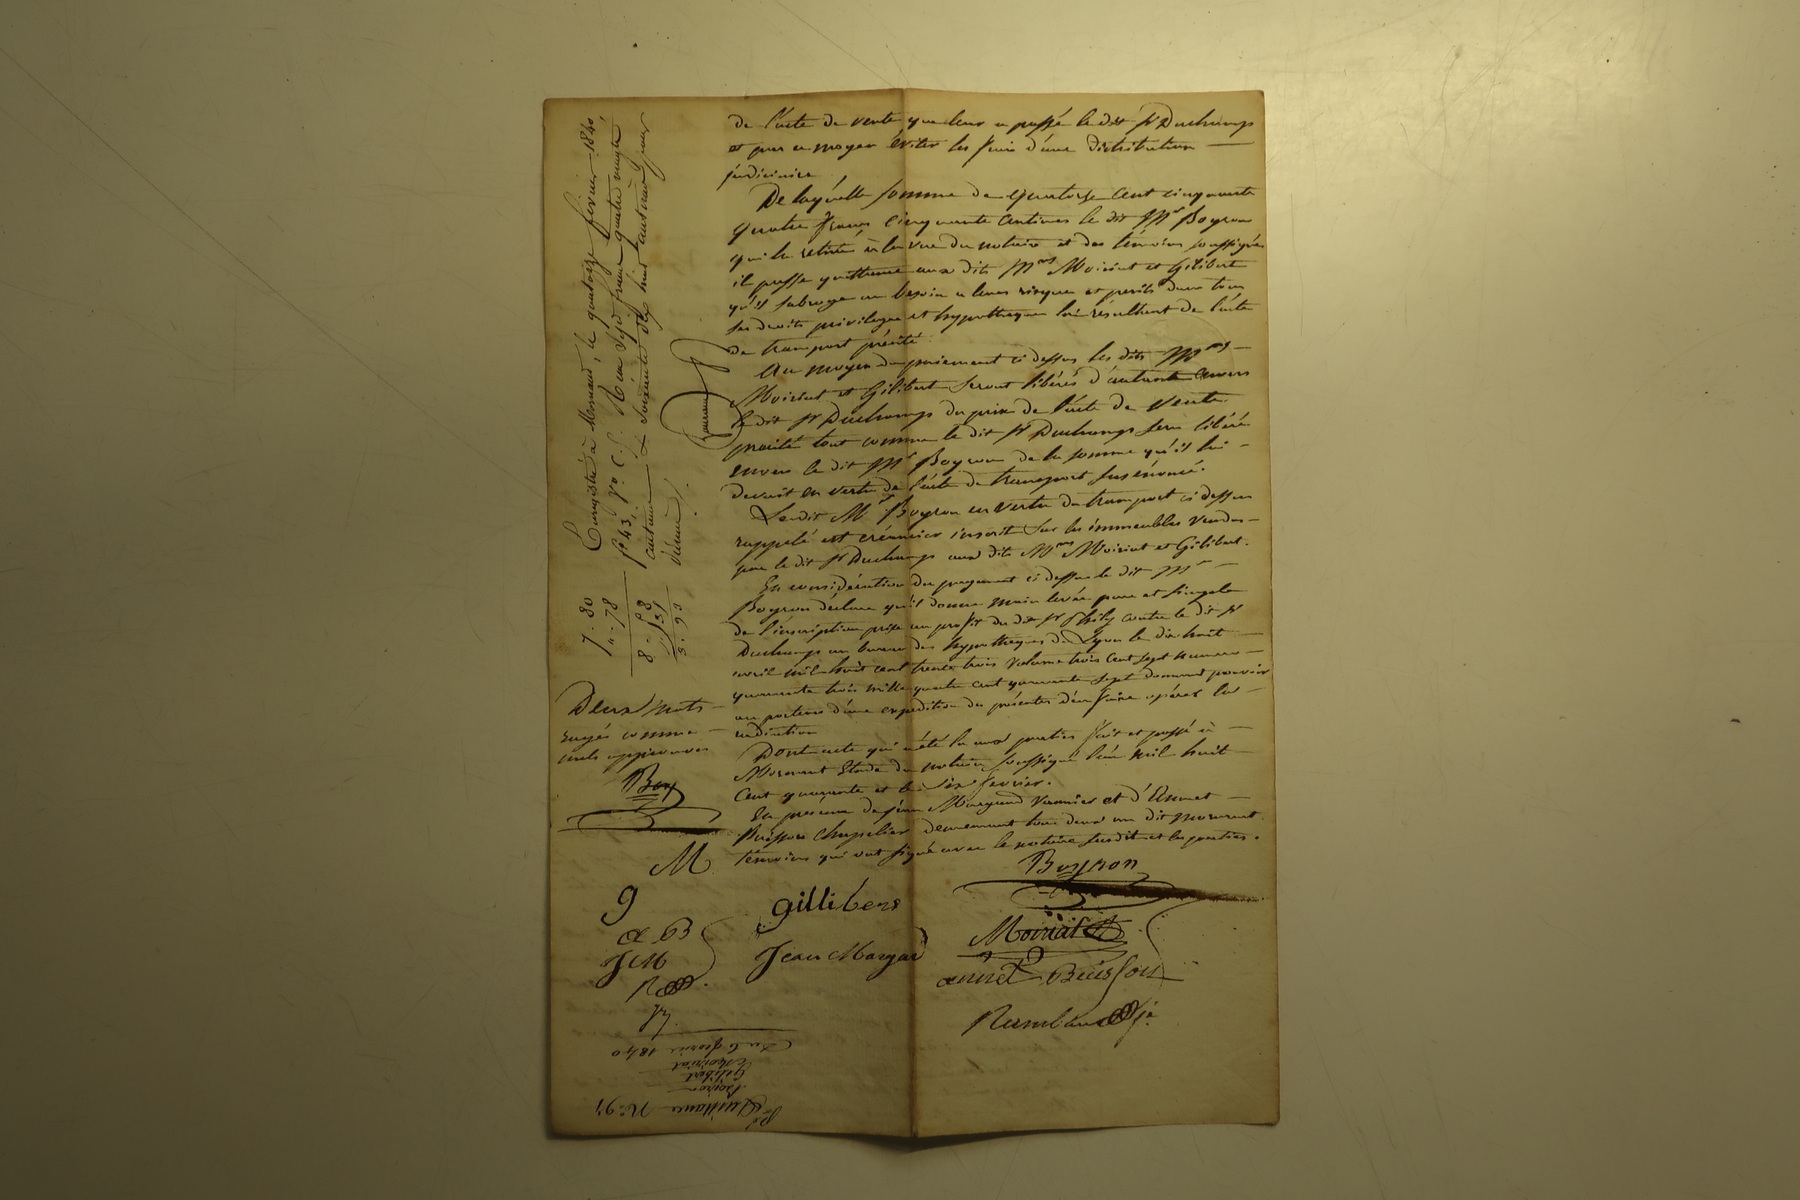 de l'acte de vente que leur a passé le dit Sr Duchamps
et par ce moyen éviter les frais d'une distribution
judiciaire
De laquelle somme de quatorze cent cinquante
quatre francs cinquante centimes le dit Mr Boyron
qui l'a retirée à la vue du notaire et des témoins soussignés
il passe quittance aux dits Mrs Moiriat et Gilibert
qu'il subroge au besoin a leurs risques et perils dans tous
ses droits privilege et hypotheque lui résultant de l'acte
de transport précité
Au moyen du paiement ci dessus les dits Mrs
Moiriat et Gilibert seront libérés d'autant envers
le dit Sr Duchamps du prix de l'acte de vente
précité tout comme le dit Sr Duchamps sera libéré
envers le dit Mr Boyron de la somme qu'il lui
devait en vertu de l'acte de transport susénoncé.
Le dit Mr Boyron en vertu du transport ci dessus
rappelé est créancier inscrit sur les immeubles vendus
par le dit Sr Duchamps aux dits Mrs Moiriat et Gilibert.
En considération du payement ci dessus le dit Mr
Boyron déclare qu'il donne main levée pure et simple
de l'inscription prise au profit du dit Sr Philis contre le dit Sr
Duchamps au bureau des hypotheques de Lyon le dix huit
avril mil huit cent trente trois volume trois cent sept numero
quarante trois mille quatre cent quarante sept donnant pouvoir
au porteur d'une expedition des présentes d'en faire opérer la
radiation
Dont acte qui a été lu aux parties fait et passé à
Mornant Etude du notaire soussigné l'an mil huit
cent quarante et le six fevrier.
En présence de Jean Margand vannier et d'Ennet
Buisson chapelier demeurant tous deux au dit Mornant
témoins qui ont signé avec le notaire susdit et les parties.
Boyron
gillibers
Moiriat
Jean Margand
annet Buisson
Enregistré à Mornant, le quatorze février 1840,
fo 43, vo c. 5. Reçu sept francs quatre vingts
centimes et soixante dix huit centimes pour
décime.
7. 80
". 78
8. 58
Deux mots
rayés comme
nuls approuvés
Boy
M
g
a B
JM
Du 6 fevrier 1840
Moiriat
Gilibert
Boyron
Quittance No 91